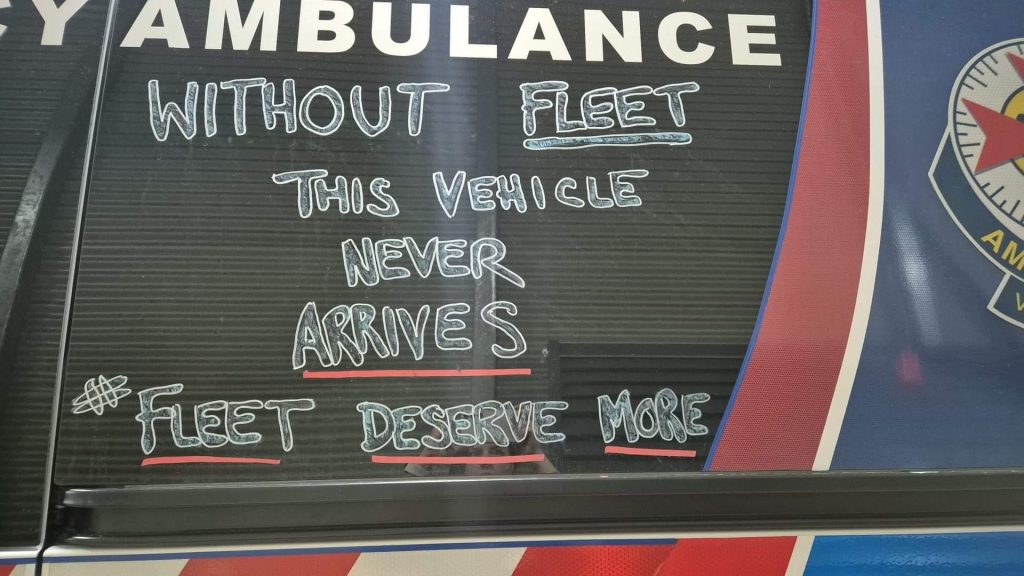 CY AMBULANCE
WITHOUT FLEET
THIS VEHICLE
NEVER
ARRIVES
# FLEET DESERVE MORE